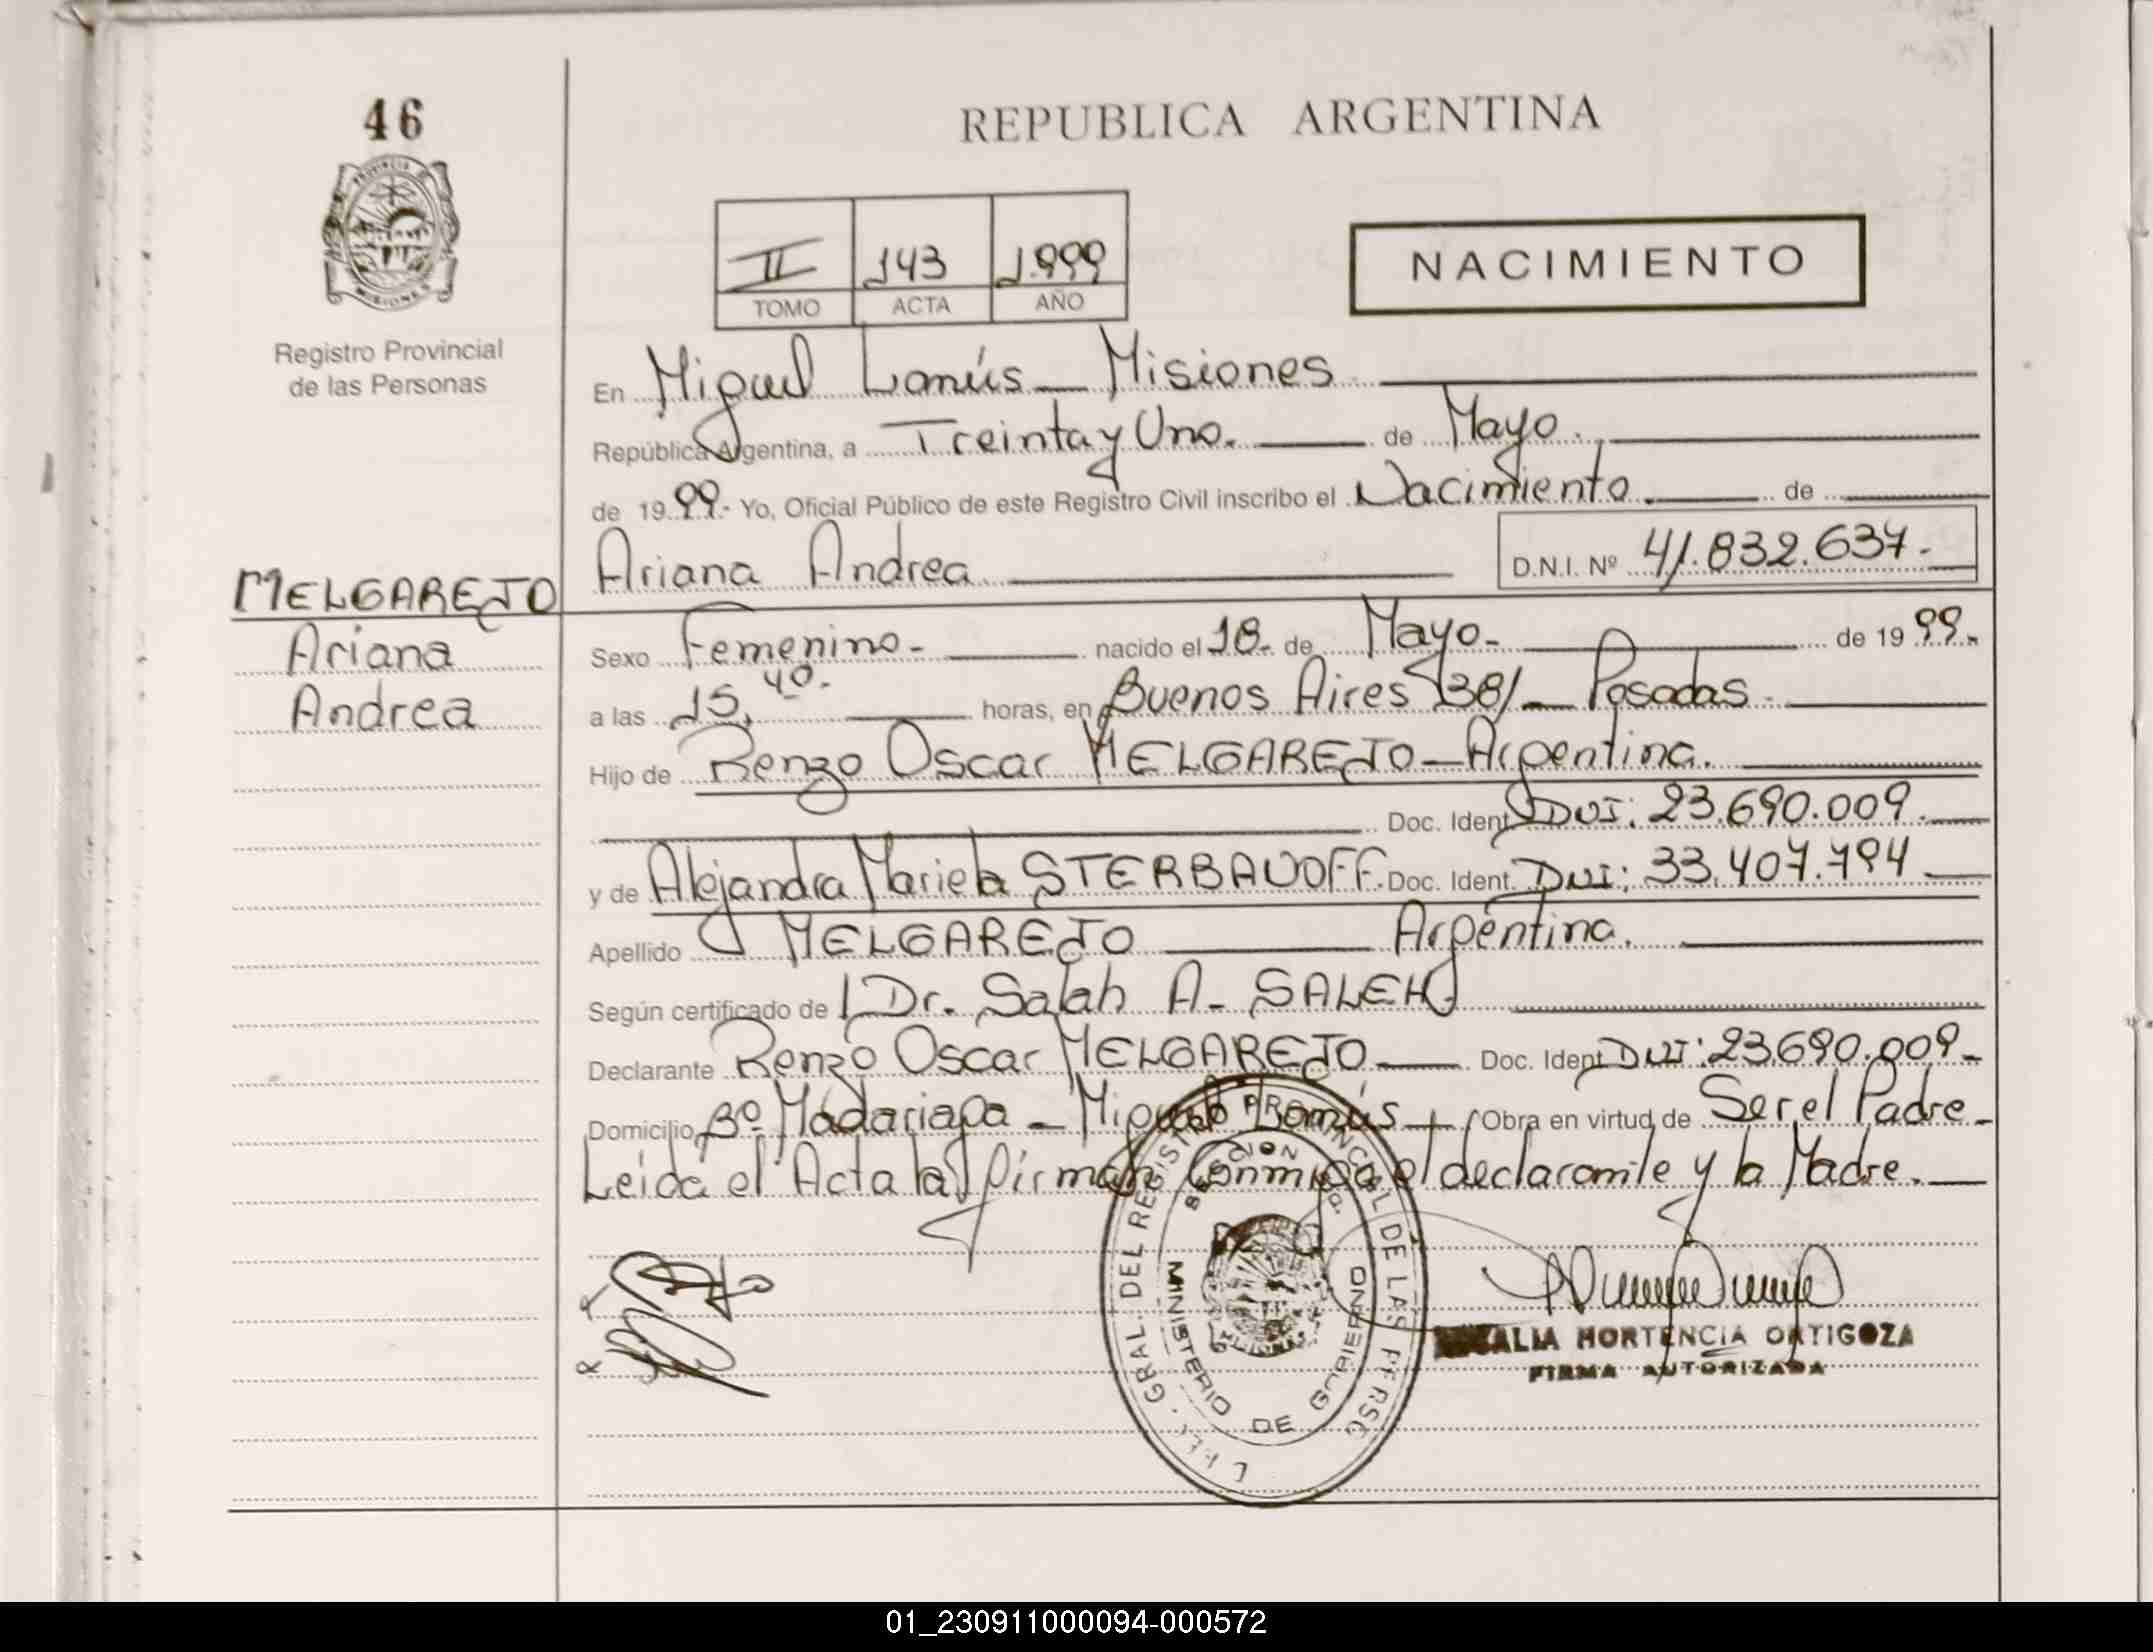 46
REPUBLICA ARGENTINA
PROVINCIA DE
MISIONES
Registro Provincial
de las Personas
II 143 1.999
TOMO ACTA AÑO
NACIMIENTO
En Miguel Lanús - Misiones
República Argentina, a Treinta y Uno. de Mayo.
de 1999.- Yo, Oficial Público de este Registro Civil inscribo el Nacimiento. de
Ariana Andrea D.N.I. Nº 41.832.637.-
MELGAREJO
Ariana
Andrea
Sexo Femenino.- nacido el 18. de Mayo.- de 1999.-
a las 15,40. horas, en Buenos Aires - Posadas.
Hijo de Renzo Oscar MELGAREJO - Argentina.
Doc. Ident. DNI: 23.690.009.
y de Alejandra Mariela STERBANOFF. Doc. Ident. DNI: 33.407.794
Apellido MELGAREJO Argentina.
Según certificado de Dr. Salah A. SALEH
Declarante Renzo Oscar MELGAREJO Doc. Ident. DNI: 23.690.009.-
Domicilio Bº Madariaga - Miguel Lanús - Obra en virtud de Ser el Padre.-
Leida el Acta la firman Conmigo el declarante y la Madre.
GRAL. DEL REGISTRO PROVINCIAL DE LAS PERSO
MINISTERIO DE GOBIERNO
HORTENCIA ORTIGOZA
FIRMA AUTORIZADA
01_230911000094-000572